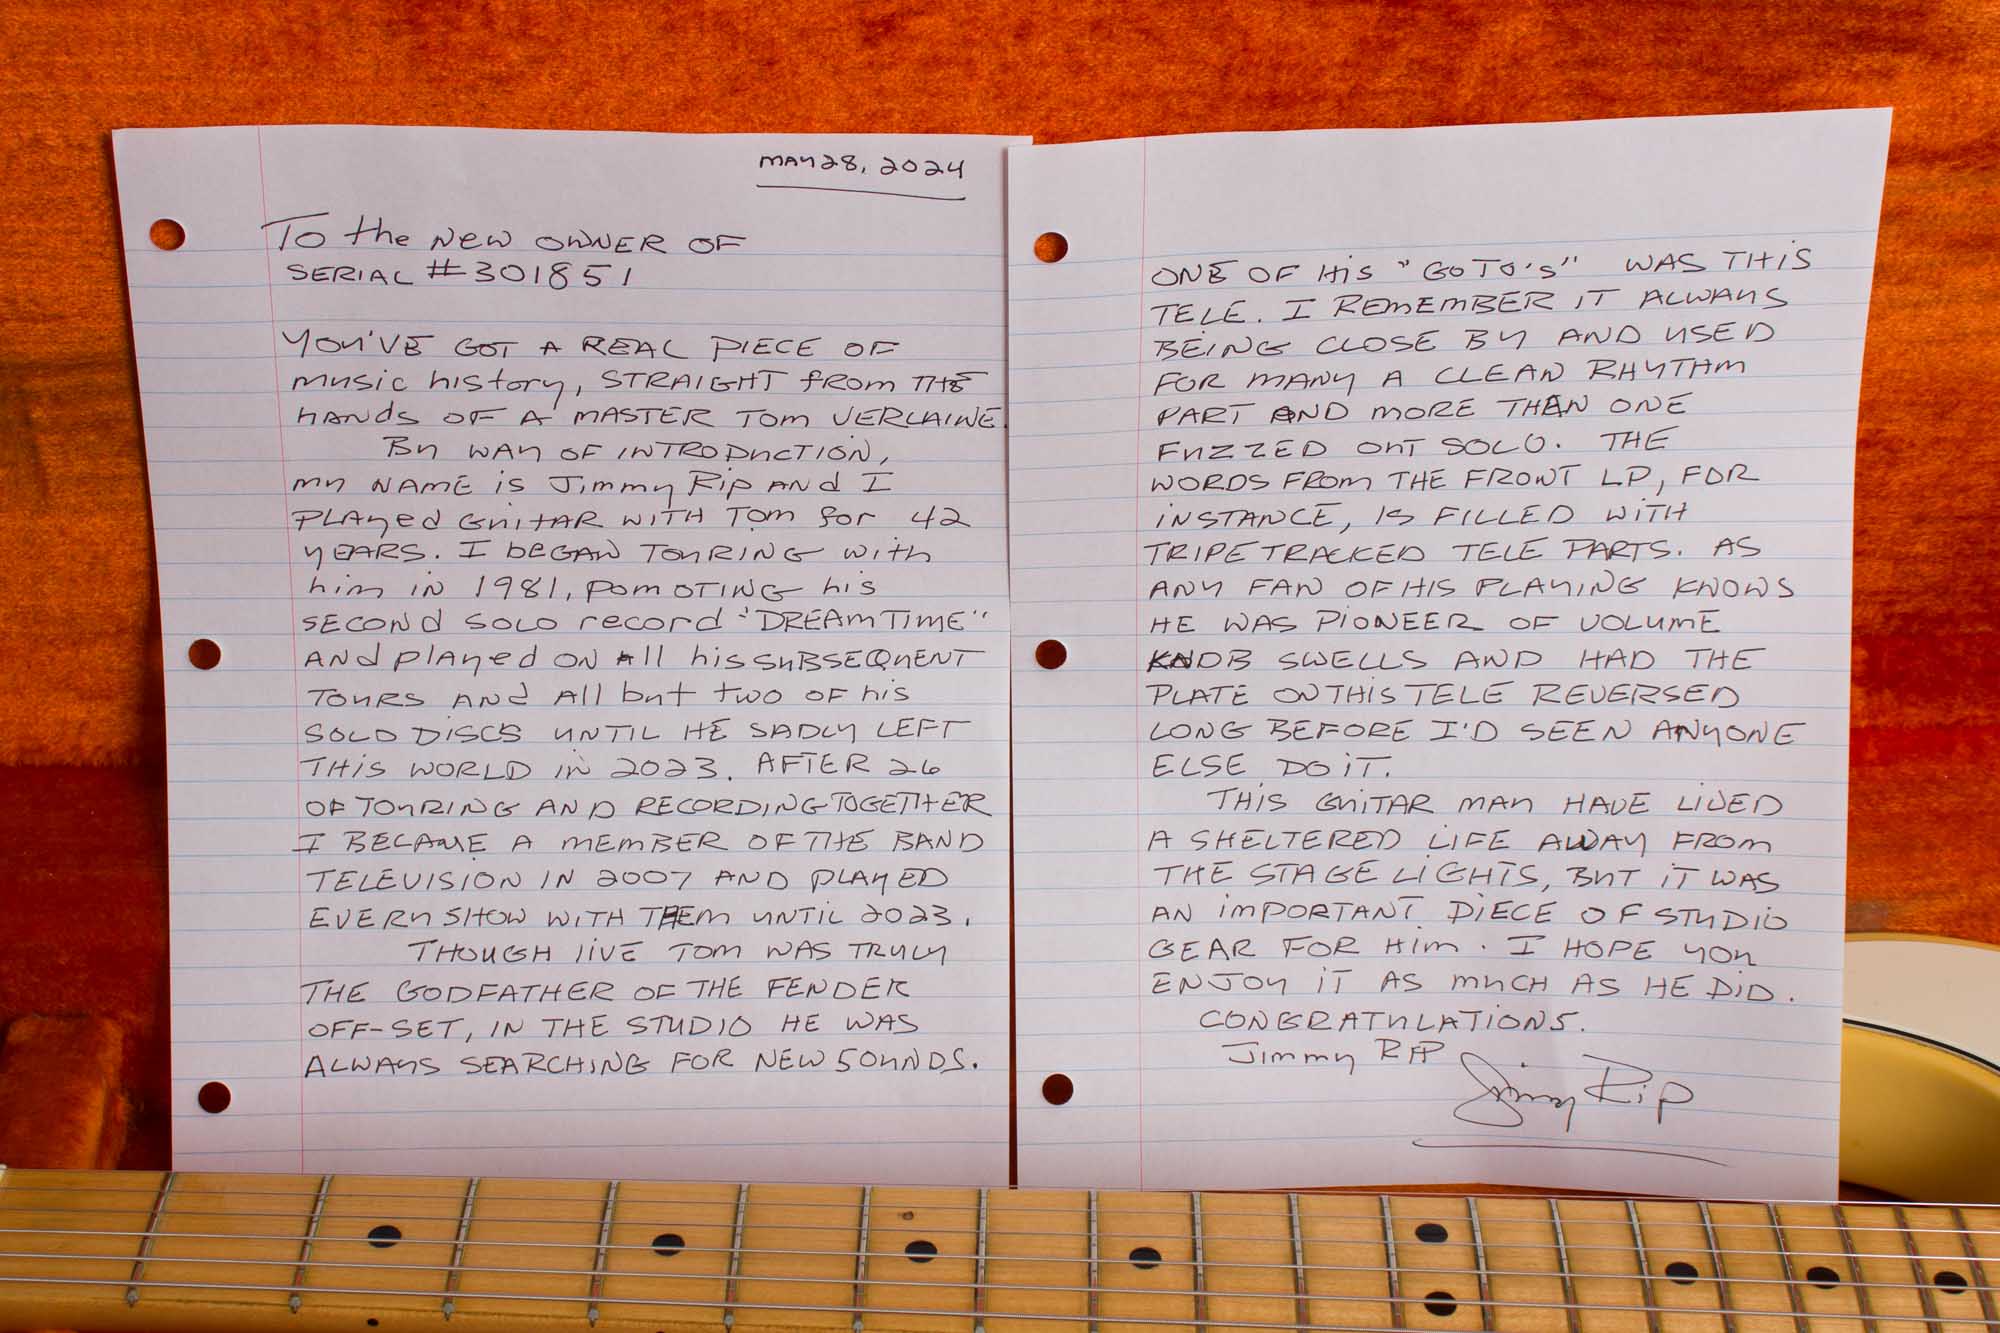 MAY 28, 2024
To the New OWNER OF
SERIAL #301851
YOU'VE GOT A REAL PIECE OF
music history, STRAIGHT from THE
hANdS OF A MASTER TOM VERLAINE.
BY WAY OF INTRODUCTION,
MY NAME is Jimmy Rip ANd I
PLAYed GUITAR WITH TOM for 42
YEARS. I beGAN TOURING with
him iN 1981, POMOTING his
SECONd SOLO record "DREAMTIME"
ANd PlAYed ON All his SUBSEQUENT
TOURS ANd All but two OF his
SOLO DISCS UNTIL HE SADLY LEFT
THIS WORLD iN 2023. AFTER 26
OF TOURING AND RECORDING TOGETHER
I BECAME A MEMBER OF THE BAND
TELEVISION IN 2007 AND PLAYED
EVERY SHOW WITH THEM UNTIL 2023.
THOUGH liVE TOM WAS TRULY
THE GODFATHER OF THE FENDER
OFF-SET, IN THE STUDIO HE WAS
ALWAYS SEARCHING FOR NEW SOUNDS.
ONE OF HiS "GO TO'S" WAS THiS
TELE. I REMEMBER IT ALWAYS
BEING CLOSE BY AND USED
FOR MANY A CLEAN RHYTHM
PART AND MORE THAN ONE
FUZZED OUT SOLO. THE
WORDS FROM THE FRONT LP, FOR
iNSTANCE, IS FILLED WITH
TRIPETRACKED TELE PARTS. AS
ANY FAN OF HIS PLAYING KNOWS
HE WAS PIONEER OF VOLUME
KNOB SWELLS AND HAD THE
PLATE ON THIS TELE REVERSED
LONG BEFORE I'D SEEN ANYONE
ELSE DO iT.
THIS GUITAR MAY HAVE LIVED
A SHELTERED LIFE AWAY FROM
THE STAGE LIGHTS, BUT iT WAS
AN iMPORTANT PIECE OF STUDIO
GEAR FOR HiM. I HOPE YOU
ENJOY iT AS MUCH AS HE DiD.
CONGRATULATIONS.
Jimmy RIP
Jimmy Rip